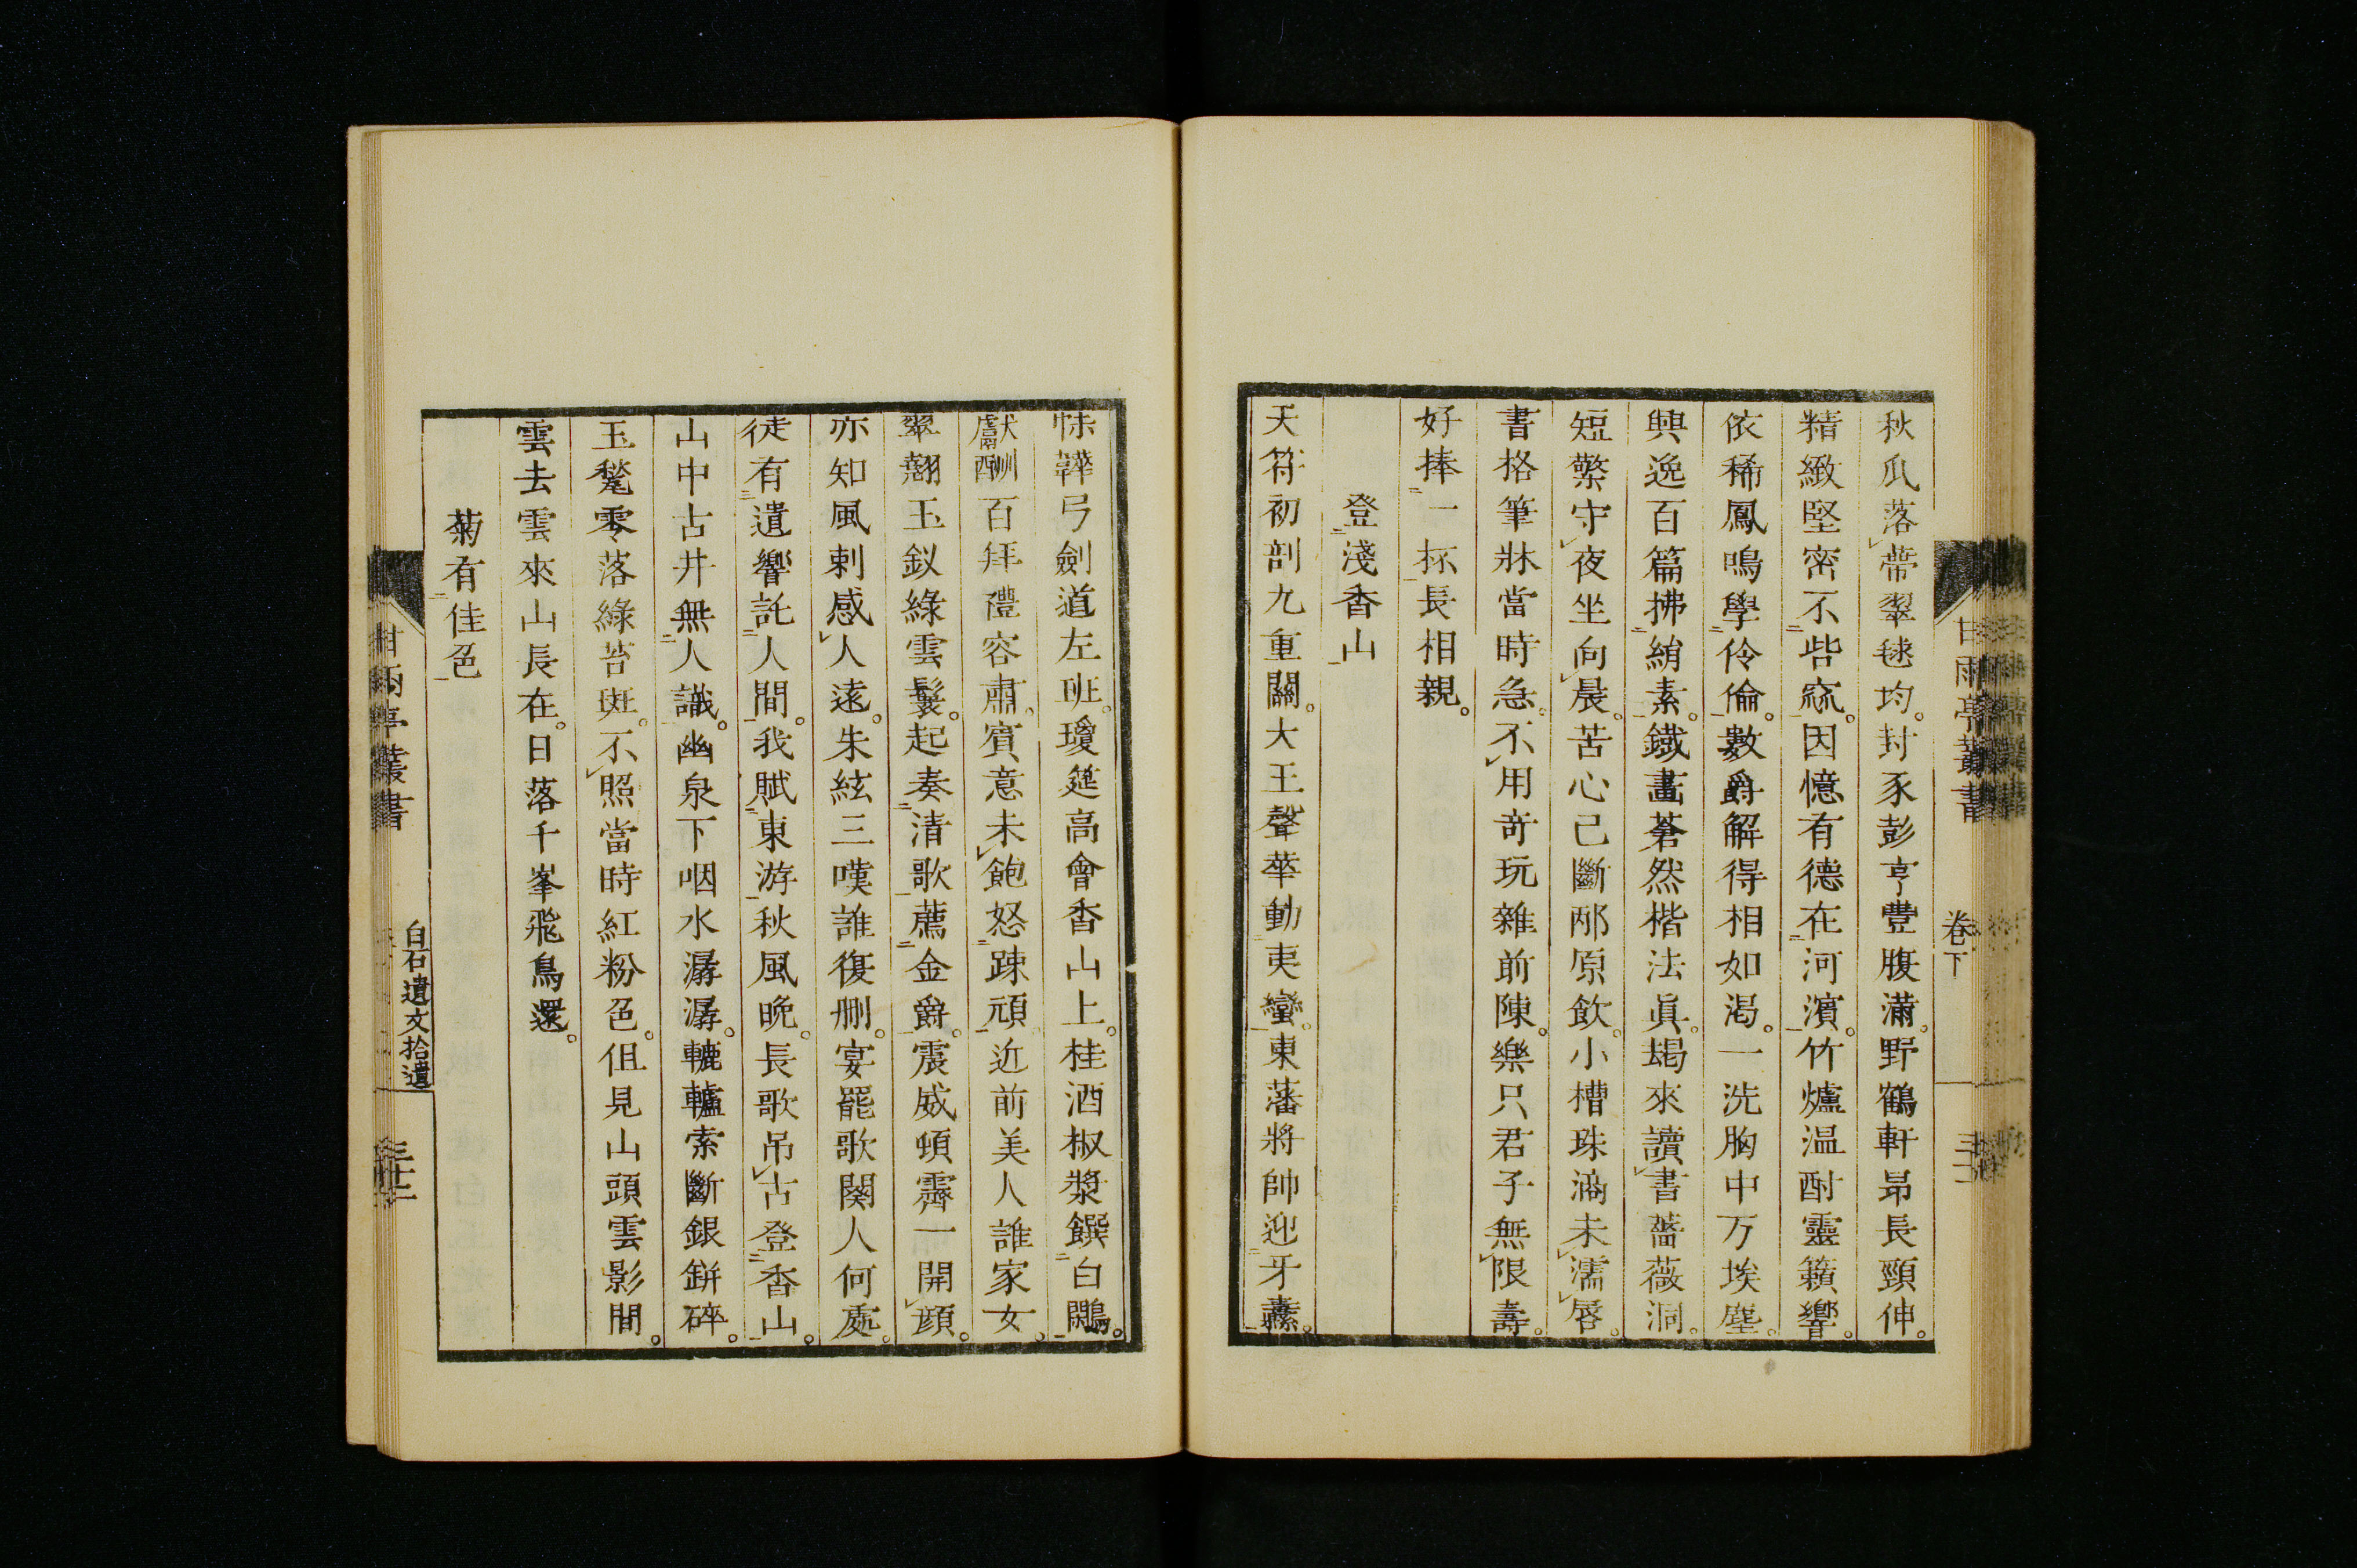 秋瓜落蔕翠毬均。封豕彭亨豐腹滿。野鶴軒昂長頸伸。
精緻堅密不呰窳。因憶有德在河濱。竹爐溫酎靈籟響。
依稀鳳鳴學伶倫。數爵解得相如渴。一洗胸中万埃塵。
興逸百篇拂綃素。鐵畫蒼然楷法眞。朅來讀書薔薇洞。
短檠守夜坐向晨。苦心已斷邴原飲。小槽珠滴未濡唇。
書格筆牀當時急。不用奇玩雜前陳。樂只君子無限壽。
好捧一抔長相親。
登淺香山
天符初剖九重關。大王聲華動夷蠻。東藩將帥迎牙纛。
韎韐弓劍道左班。瓊筵高會香山上。桂酒椒漿饌白鷴。
獻酬百拜禮容肅。賓意未飽怒疎頑。近前美人誰家女。
翠翹玉釵綠雲鬟。起奏清歌薦金爵。震威頓霽一開顔。
亦知風刺感人遠。朱絃三嘆誰復刪。宴罷歌闋人何處。
徒有遺響託人間。我賦東游秋風晩。長歌吊古登香山。
山中古井無人識。幽泉下咽水潺潺。轆轤索斷銀缾碎。
玉甃零落綠苔斑。不照當時紅粉色。但見山頭雲影閒。
雲去雲來山長在。日落千峯飛鳥還。
菊有佳色
甘雨亭叢書
卷下
甘雨亭叢書
白石遺文拾遺